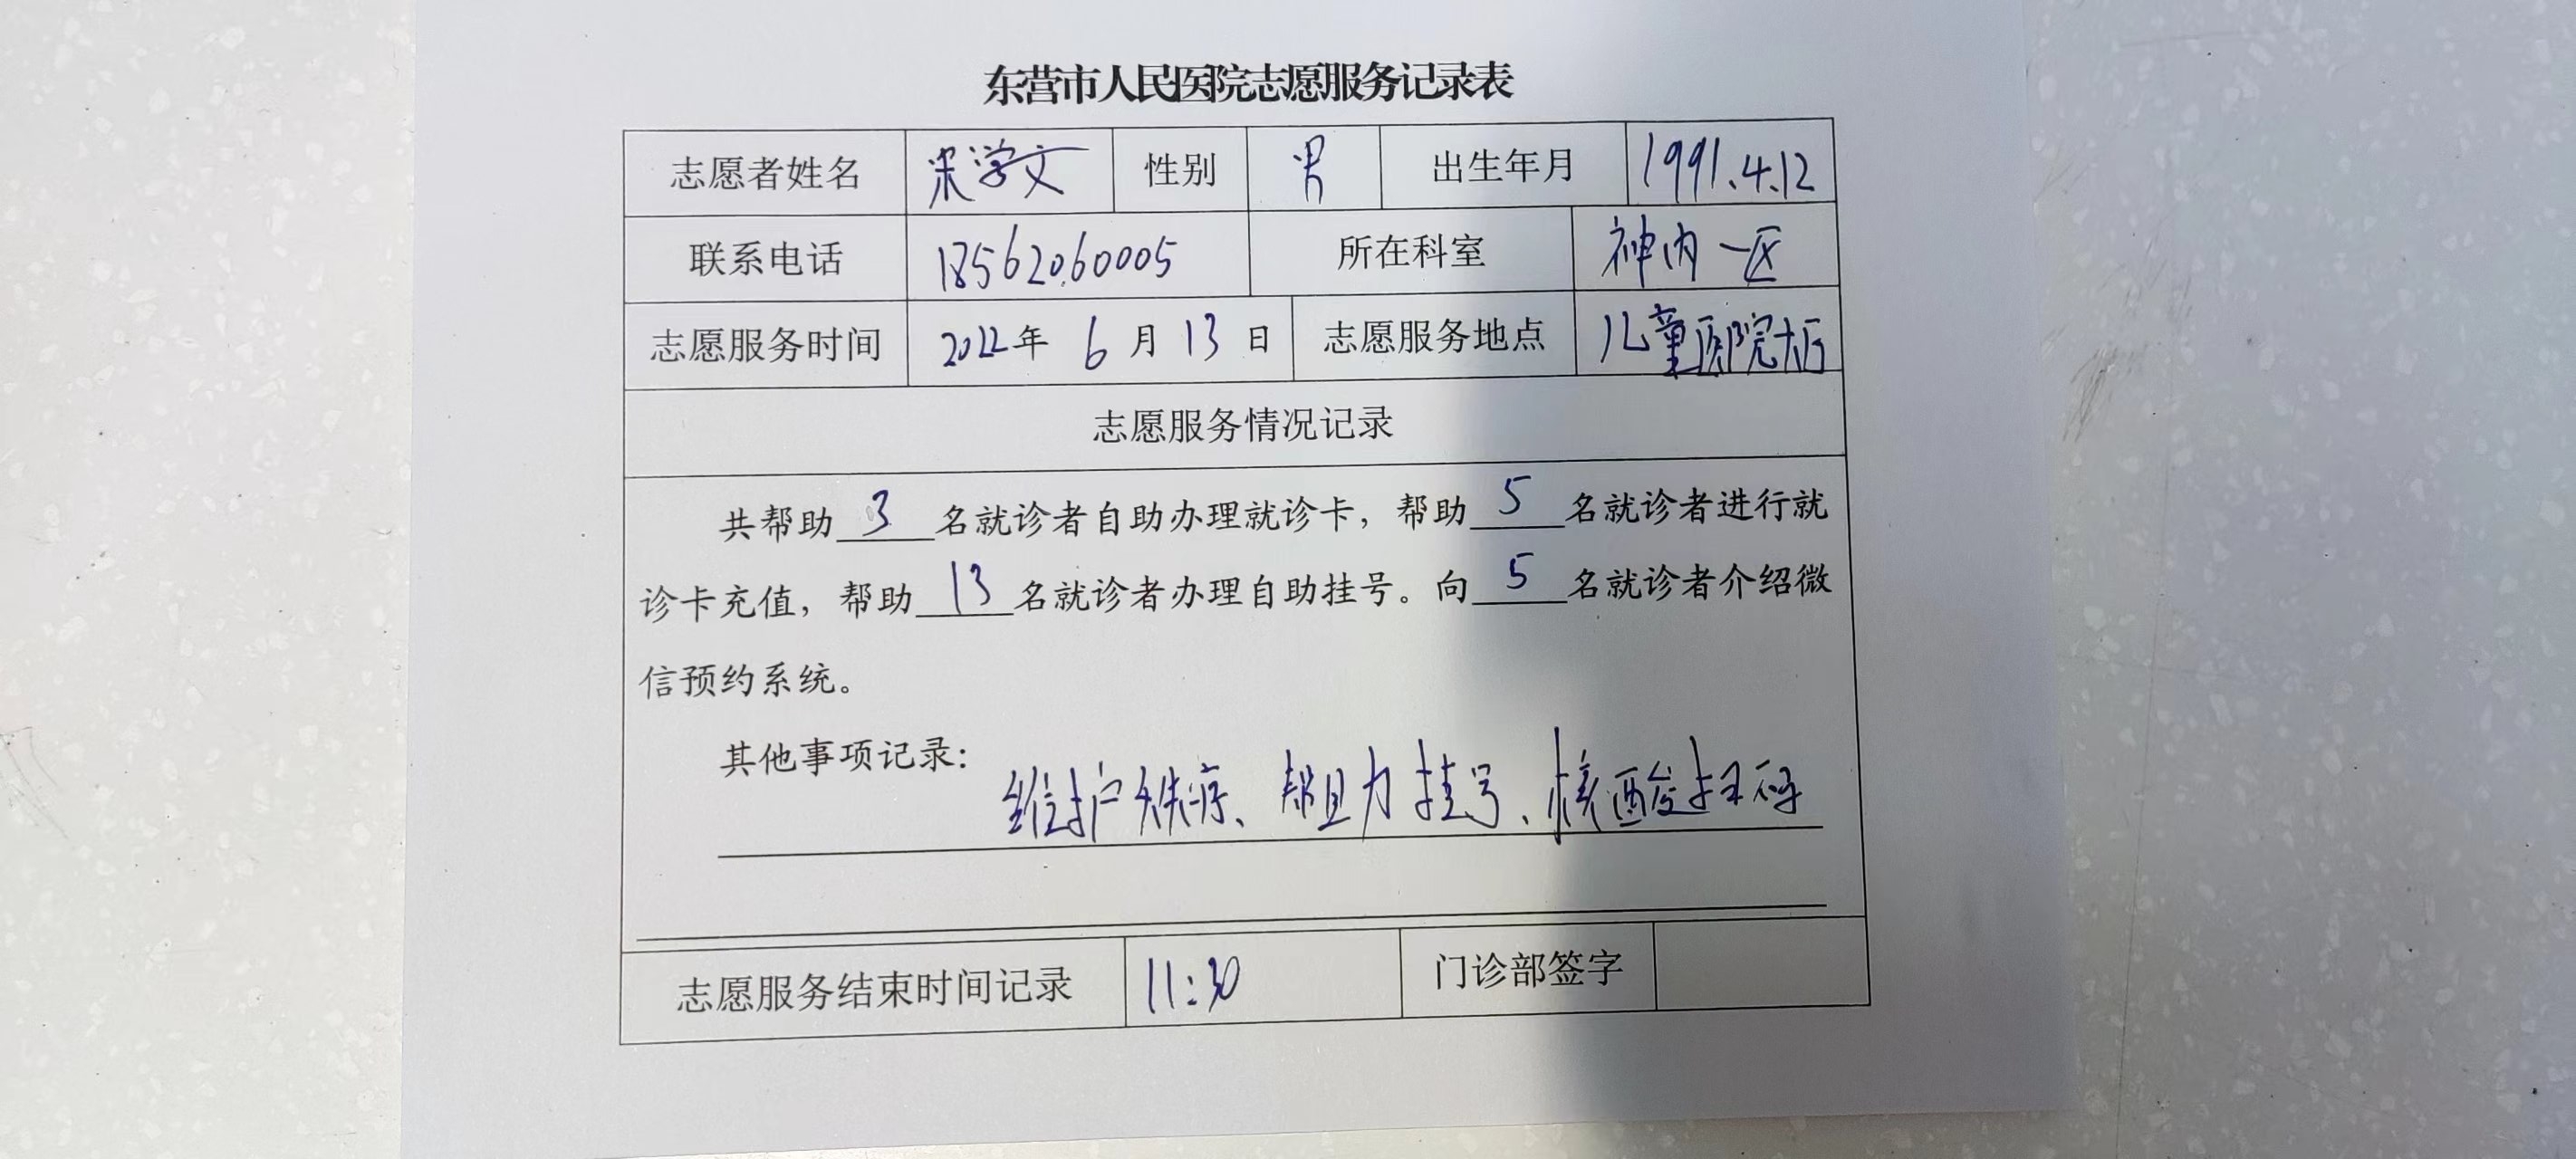 东营市人民医院志愿服务记录表
志愿者姓名 宋学文 性别 男 出生年月 1991.4.12
联系电话 18562060005 所在科室 神内一区
志愿服务时间 2022年 6 月 13 日 志愿服务地点 儿童医院大厅
志愿服务情况记录
共帮助 3 名就诊者自助办理就诊卡，帮助 5 名就诊者进行就
诊卡充值，帮助 13 名就诊者办理自助挂号。向 5 名就诊者介绍微
信预约系统。
其他事项记录：
维护秩序、帮助挂号、核酸扫码
志愿服务结束时间记录 11:30 门诊部签字